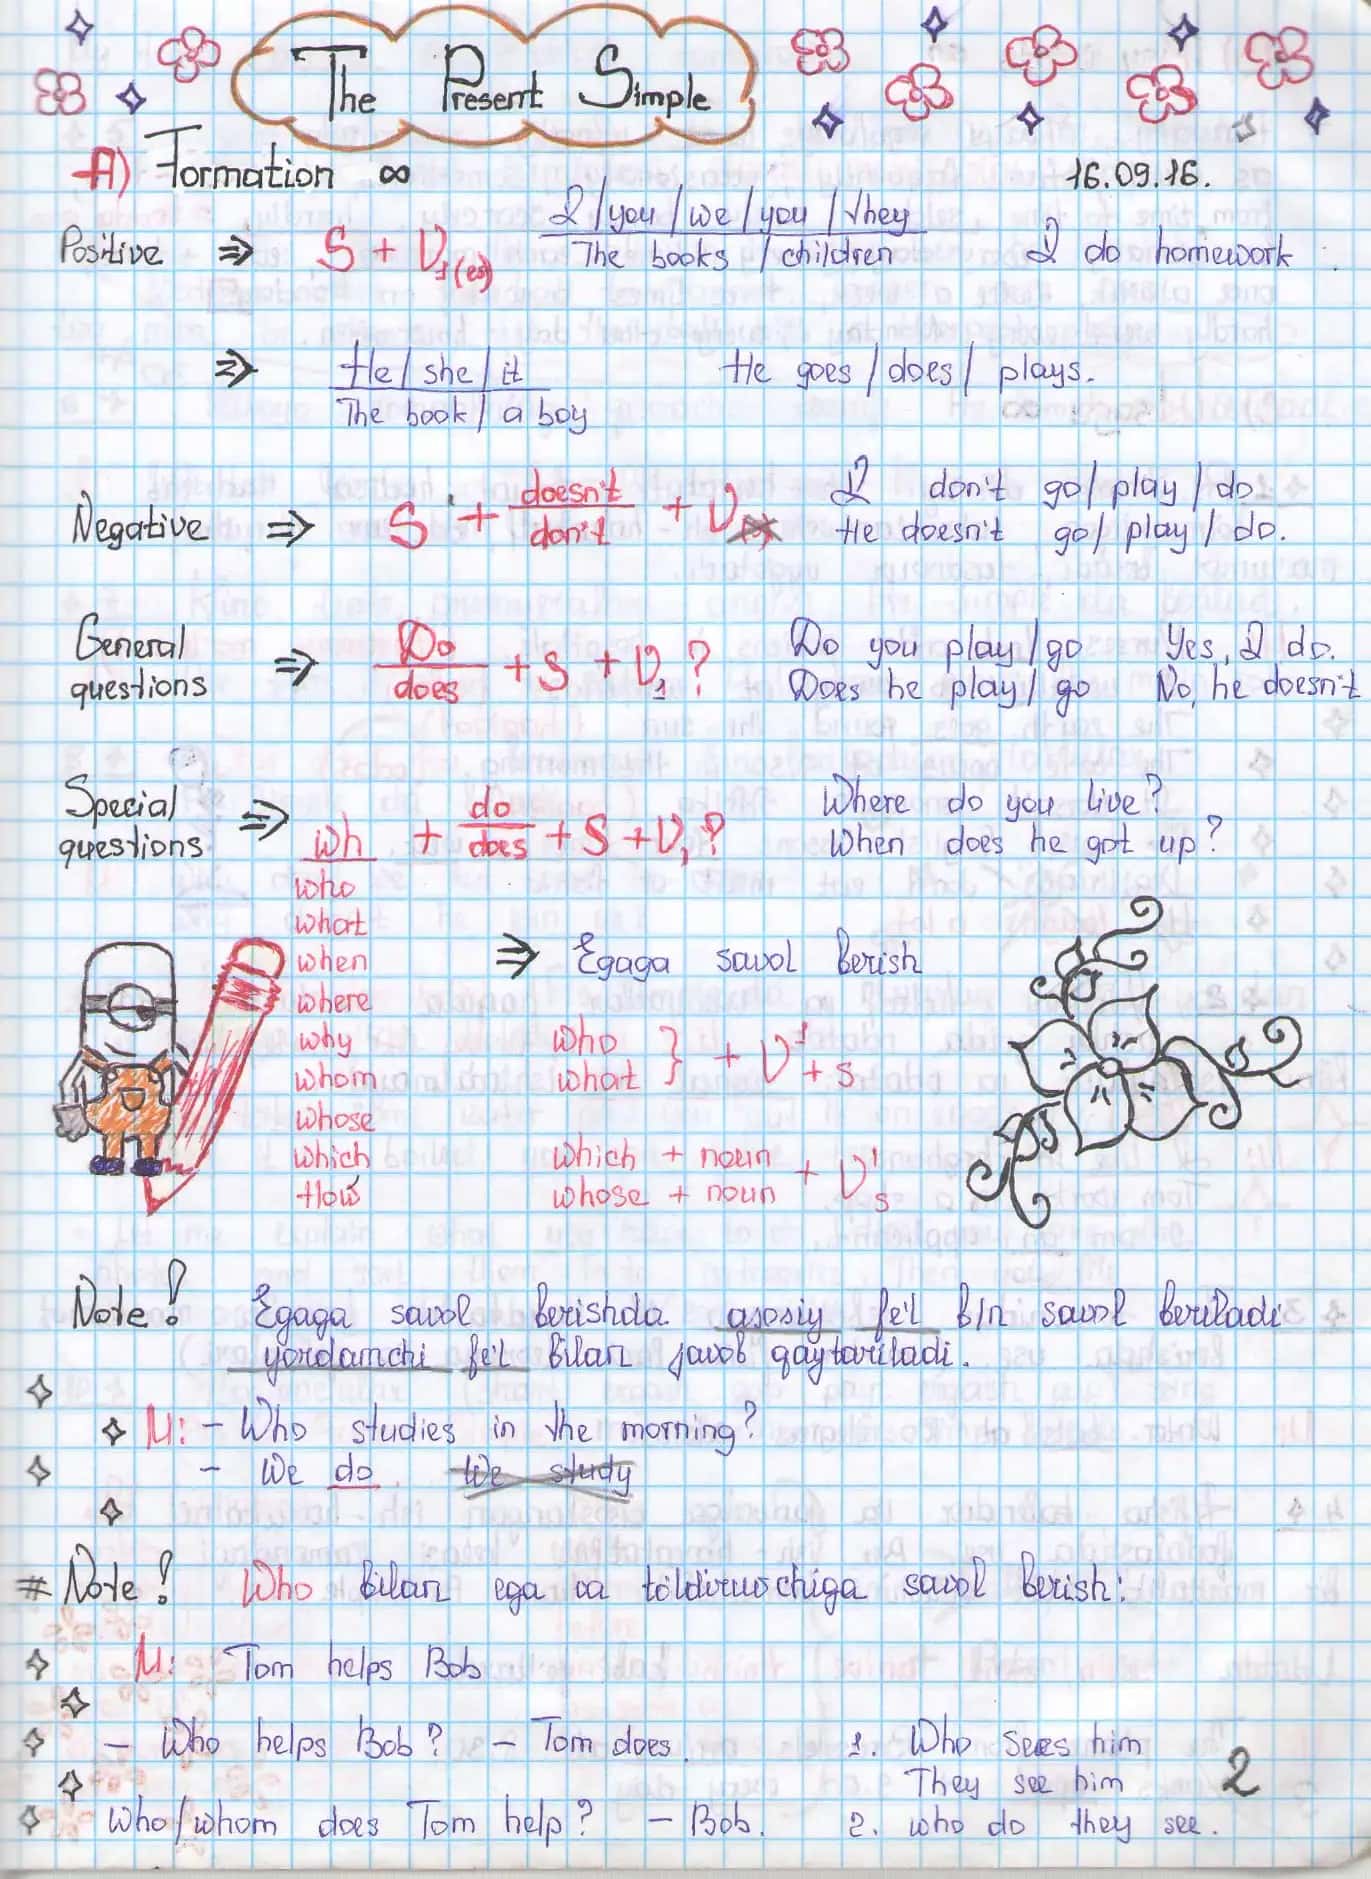 The Present Simple
A) Formation ∞
16.09.16.
Positive ⇒ S + V1(es) I/you/we/you/they I do homework
The books/children
⇒ He/she/it He goes/does/plays.
The book/a boy
Negative ⇒ S + doesn't/don't + V(s) I don't go/play/do
He doesn't go/play/do.
General questions ⇒ Do/does + S + V1? Do you play/go Yes, I do.
Does he play/go No, he doesn't
Special questions ⇒ wh + do/does + S + V1? Where do you live?
When does he got up?
who
what
when
where
why
whom
whose
which
How
⇒ Egaga savol berish
who
what } + V1+s
which + noun
whose + noun + V1s
Note! Egaga savol berishda asosiy fe'l b/n savol beriladi
yordamchi fe'l bilan javob qaytariladi.
M: – Who studies in the morning?
– We do. We study
# Note! Who bilan ega va to'ldiruvchiga savol berish:
M: Tom helps Bob
– Who helps Bob? – Tom does.
Who/whom does Tom help? – Bob.
1. Who sees him
They see him
2. who do they see.
2